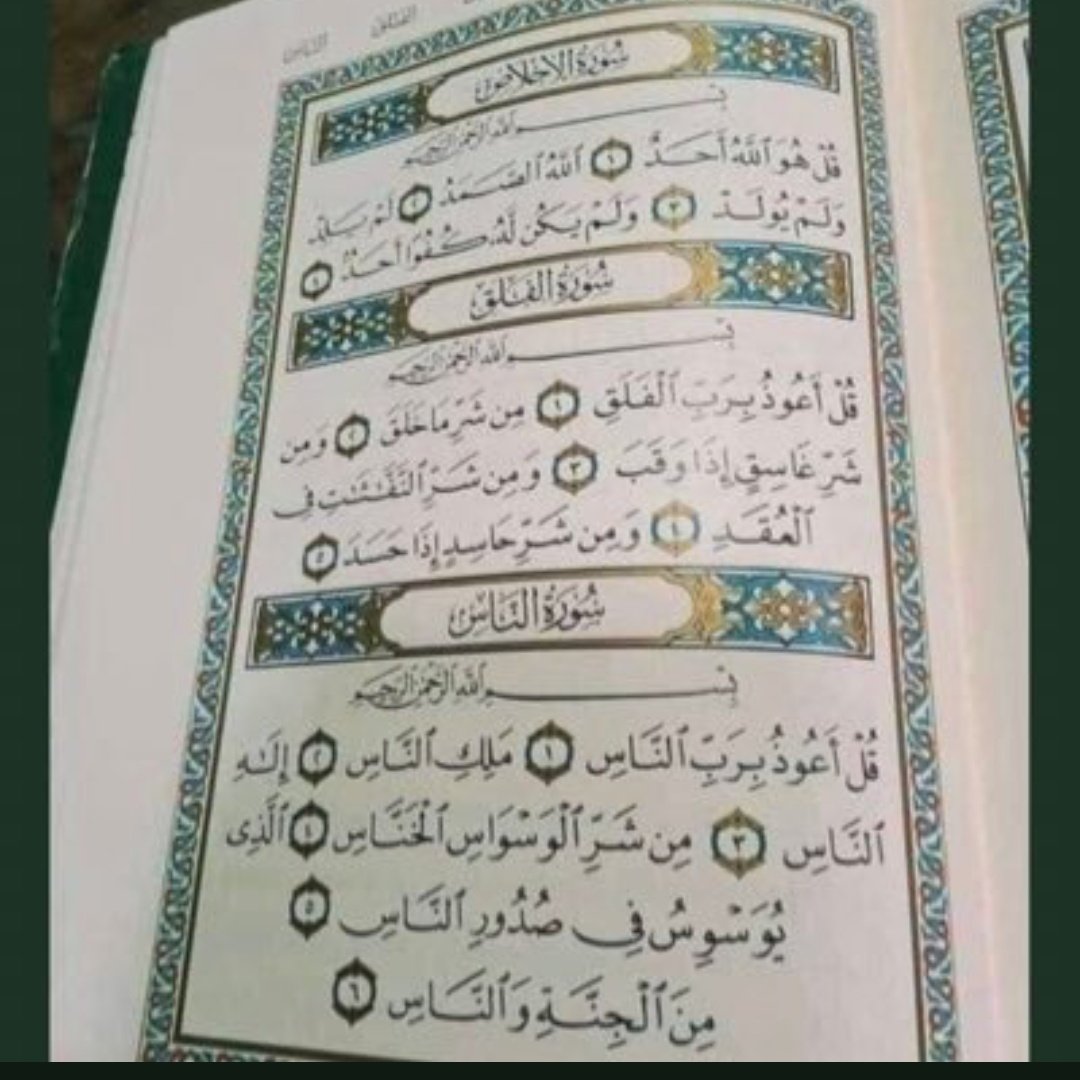 الفلق الناس
سُورَةُ الإِخْلَاصِ
بِسْمِ ٱللَّهِ ٱلرَّحْمَٰنِ ٱلرَّحِيمِ
قُلْ هُوَ ٱللَّهُ أَحَدٌ ١ ٱللَّهُ ٱلصَّمَدُ ٢ لَمْ يَلِدْ
وَلَمْ يُولَدْ ٣ وَلَمْ يَكُن لَّهُۥ كُفُوًا أَحَدٌۢ ٤
سُورَةُ الفَلَقِ
بِسْمِ ٱللَّهِ ٱلرَّحْمَٰنِ ٱلرَّحِيمِ
قُلْ أَعُوذُ بِرَبِّ ٱلْفَلَقِ ١ مِن شَرِّ مَا خَلَقَ ٢ وَمِن
شَرِّ غَاسِقٍ إِذَا وَقَبَ ٣ وَمِن شَرِّ ٱلنَّفَّٰثَٰتِ فِى
ٱلْعُقَدِ ٤ وَمِن شَرِّ حَاسِدٍ إِذَا حَسَدَ ٥
سُورَةُ النَّاسِ
بِسْمِ ٱللَّهِ ٱلرَّحْمَٰنِ ٱلرَّحِيمِ
قُلْ أَعُوذُ بِرَبِّ ٱلنَّاسِ ١ مَلِكِ ٱلنَّاسِ ٢ إِلَٰهِ
ٱلنَّاسِ ٣ مِن شَرِّ ٱلْوَسْوَاسِ ٱلْخَنَّاسِ ٤ ٱلَّذِى
يُوَسْوِسُ فِى صُدُورِ ٱلنَّاسِ ٥
مِنَ ٱلْجِنَّةِ وَٱلنَّاسِ ٦